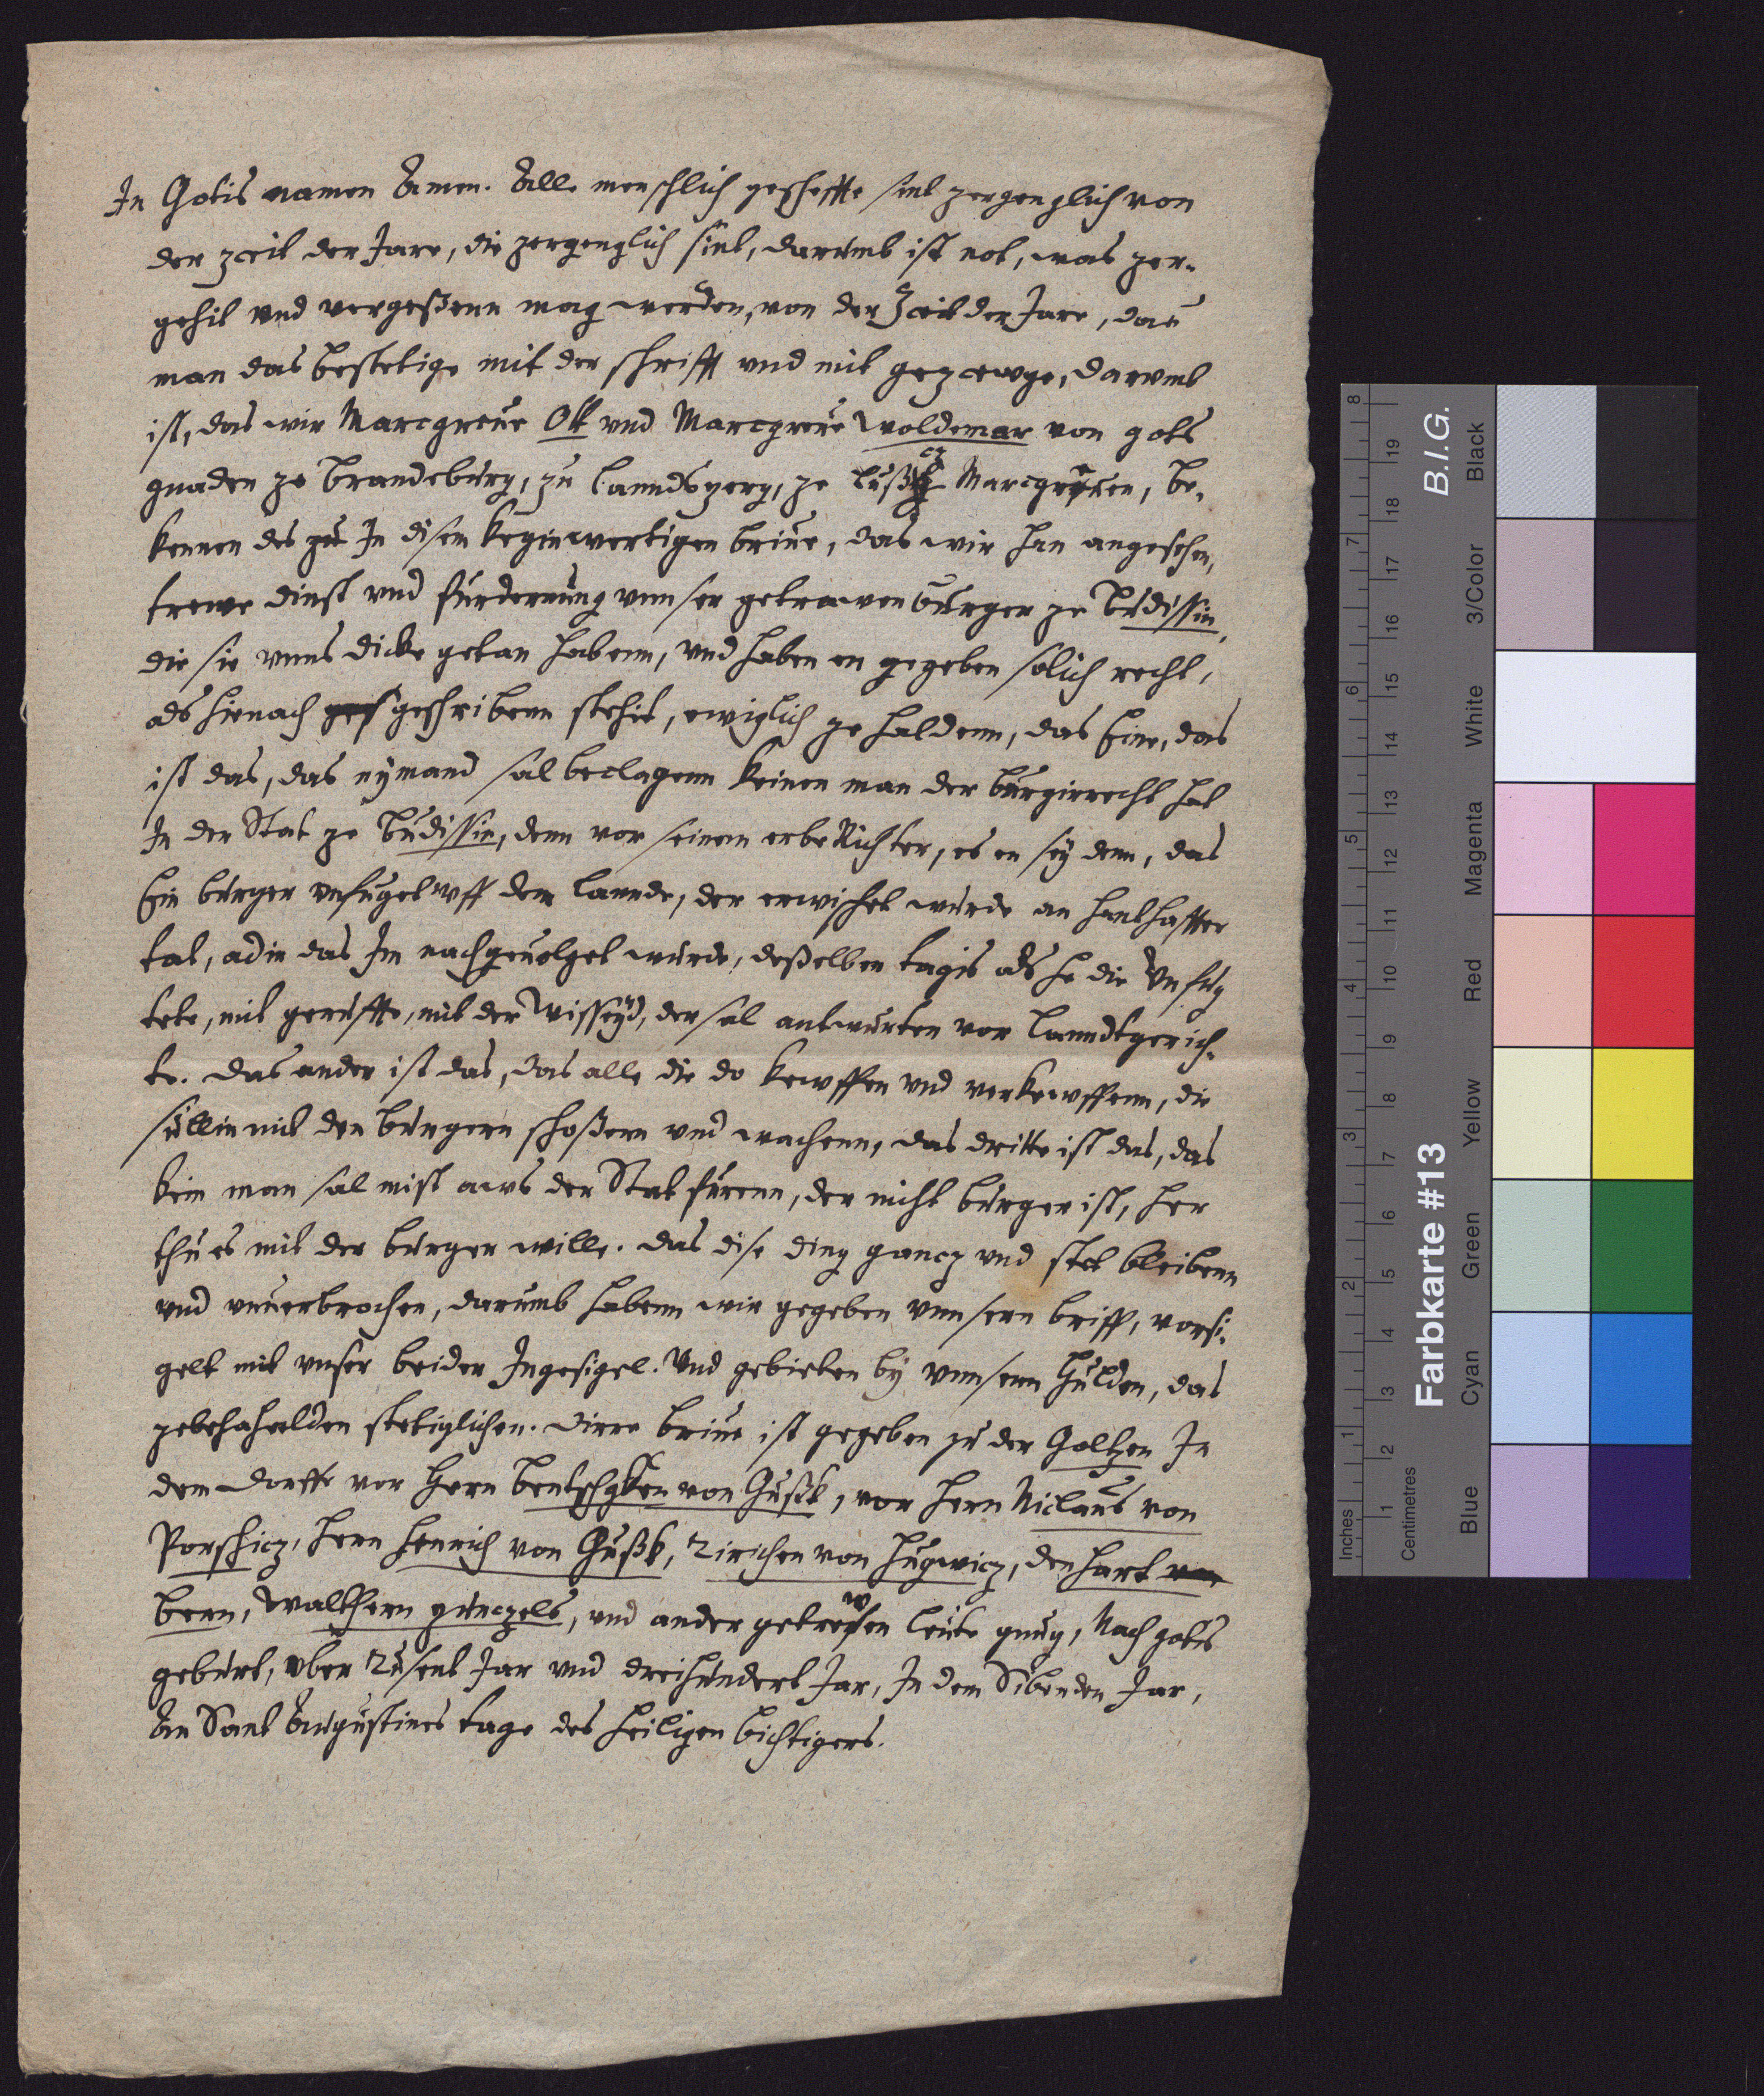 In Gotis namen Amen. Alle menschlich geschaffte sint zergenglich von
der zceit der Jare, die zergenglich sint, darumb ist not, was zer-
gehit vnd vergeßenn mag werden, von der Zceit der Jare, das
man das bestetige mit der schrifft vnd mit gezcewge, darvmb
ist, das wir Marcgreue Ott vnd Marcgreue Woldemar von gots
gnaden ze Brandeburg, zu Lanndsperg, ze Lusicz Marcgreuen, be-
kennen des zu In disem keginwertigen briue, das wir han angesehen,
trewe dinst vnd furderung vnnser getrawen Burger ze Budissin,
die sie vnns dicke getan habenn, vnd haben en gegeben solich recht,
als hienach ges geschribenn stehit, ewiglich ze haldenn, das Eine, das
ist das, das nymand sal beclagenn keinen man der burgirrecht hat
In der Stat ze Budissin, denn vor seinem erbe Richter, es en sy denn, das
Ein burger vnfuget vff dem Lannde, der erwischet wurde an hanthaffter
tat, adir das Im nachgeuolget wurde, deßelben tagis als he die Vnfug
tete, mit geruffte, mit der wissend, der sal antwurten vor Lanndtgerich-
te. Das ander ist das, das alle die do kewffen vnd verkewffenn, die
sullin mit den burgern schoßenn vnd wachenn, das dritte ist das, das
kein man sal mist aws der Stat furenn, der nicht burger ist, her
thu es mit der burger wille. das dise ding gancz vnd stet bleibenn
vnd vnuerbrochen, darumb habenn wir gegeben vnnsern briff, vorsi-
gelt mit vnser beider Ingesigel. Vnd gebieten by vnnsern Hulden, das
zebehahalden stetiglichen. Dirre briue ist gegeben zu der Goltzen In
dem Dorffe vor Hern Bentschken von Gußk, vor Hern Niclaus von
Porschicz, Hern Henrich von Gußk, Tirichen von Hugwicz, den Hart von
bern, Walthern gunczels, vnd ander getrewen Leute gnug, Nach gotis
geburt, vber Tusent Jar vnd dreihundert Jar, In dem Sibenden Jar,
An Sant Augustines tage des heiligen bichtigers.
Inches
1 2 3 4 5 6 7 8
Centimetres
1 2 3 4 5 6 7 8 9 10 11 12 13 14 15 16 17 18 19
Farbkarte #13
B.I.G.
Blue Cyan Green Yellow Red Magenta White 3/Color Black